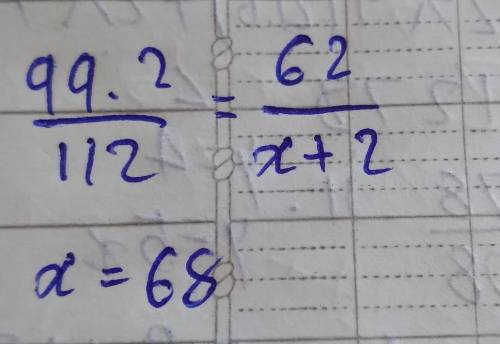 99.2/112 = 62/x+2
x = 68